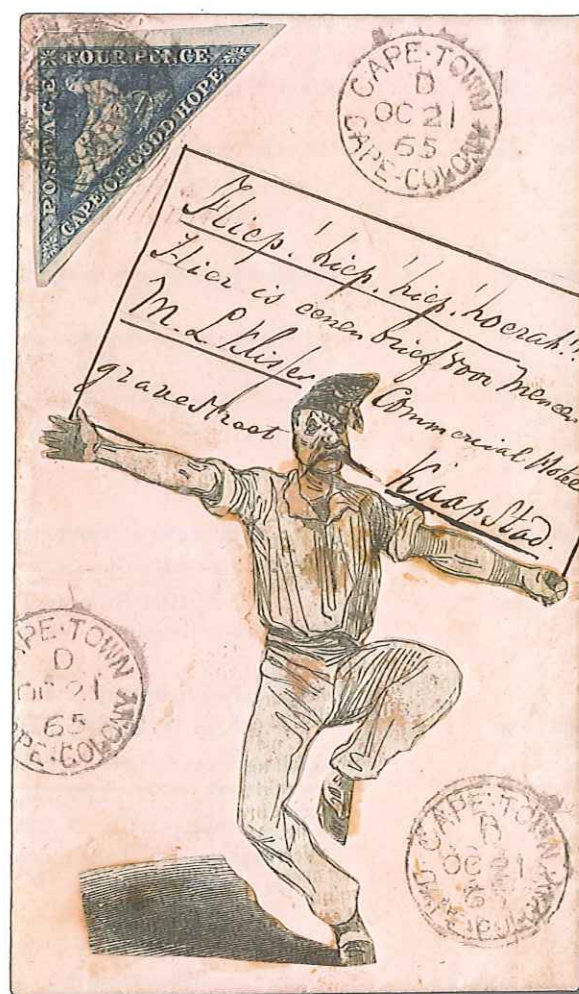 FOUR PENCE
POSTAGE
CAPE OF GOOD HOPE
CAPE·TOWN
D
OC 21
65
CAPE·COLONY
Hiep! hiep! hiep! hoerah!!
Hier is eenen brief voor Meneer
M. L. Commercial Hotel
gravestraat KaapStad.
CAPE·TOWN
D
OC 21
65
CAPE·COLONY
CAPE·TOWN
D
OC 21